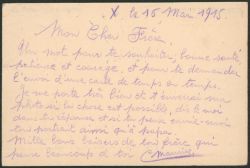 X. le 15 Mai 1915.
Mon Cher Frère,
Un mot pour te souhaiter, bonne santé,
patience et courage, et pour te demander
l'envoi d'une carte de temps en temps.
Je me porte très bien et t'enverrai ma
photo si la chose est possible, dès l'envoi
de ta réponse et si tu peux
ainsi qu'à papa.
Mille bons baisers de ton frère qui
pense beaucoup à toi